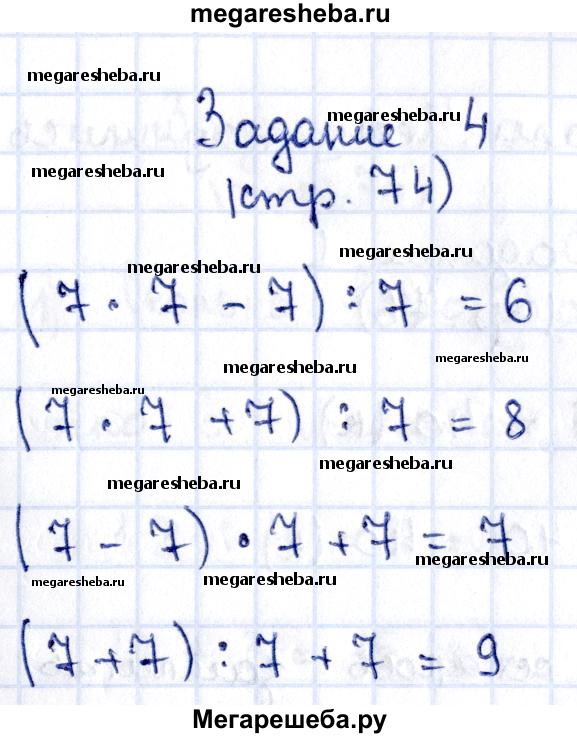 megaresheba.ru
megaresheba.ru
Задание 4
megaresheba.ru
megaresheba.ru
(стр. 74)
megaresheba.ru
megaresheba.ru
(7 · 7 - 7) : 7 = 6
megaresheba.ru
megaresheba.ru
megaresheba.ru
(7 · 7 + 7) : 7 = 8
megaresheba.ru
megaresheba.ru
(7 - 7) · 7 + 7 = 7
megaresheba.ru
megaresheba.ru
megaresheba.ru
(7 + 7) : 7 + 7 = 9
Мегарешеба.ру